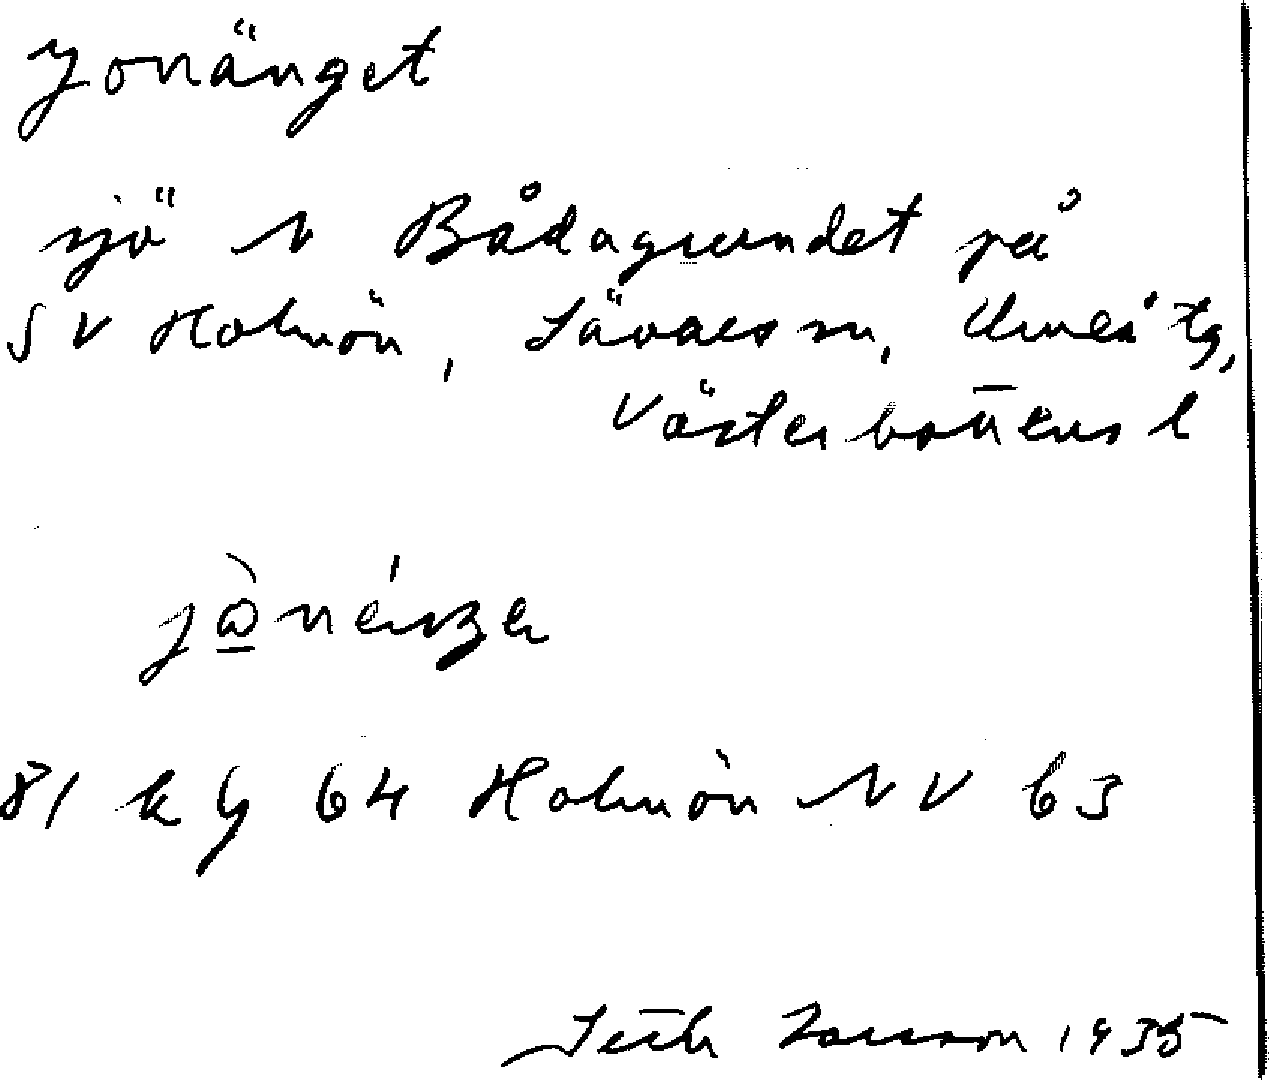 Jonänget
sjö N Bådagrundet på
SV Holmön, Sävars sn, Umeå tg,
Västerbottens l
81 k y 64 Holmön NV 63
Seth Larsson 1935